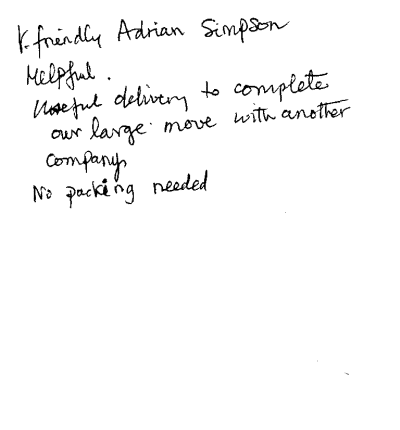 V. friendly Adrian Simpson
Helpful.
Useful delivery to complete
our large move with another
company
No packing needed